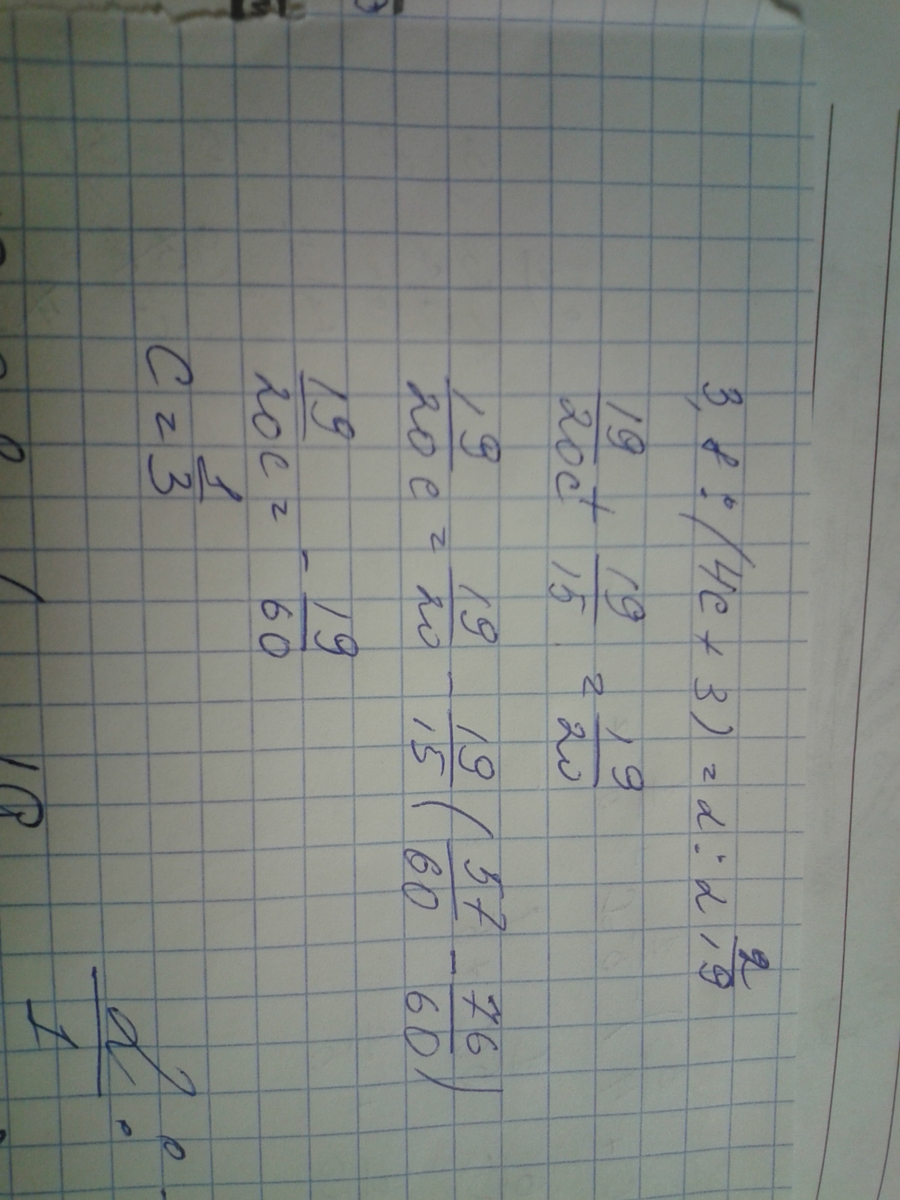 3,8 : (4c + 3) = 2 : 2 2/19
19/20c + 19/15 = 19/20
19/20 c = 19/20 - 19/15 (57/60 - 76/60)
19/20 c = - 19/60
c = 1/3